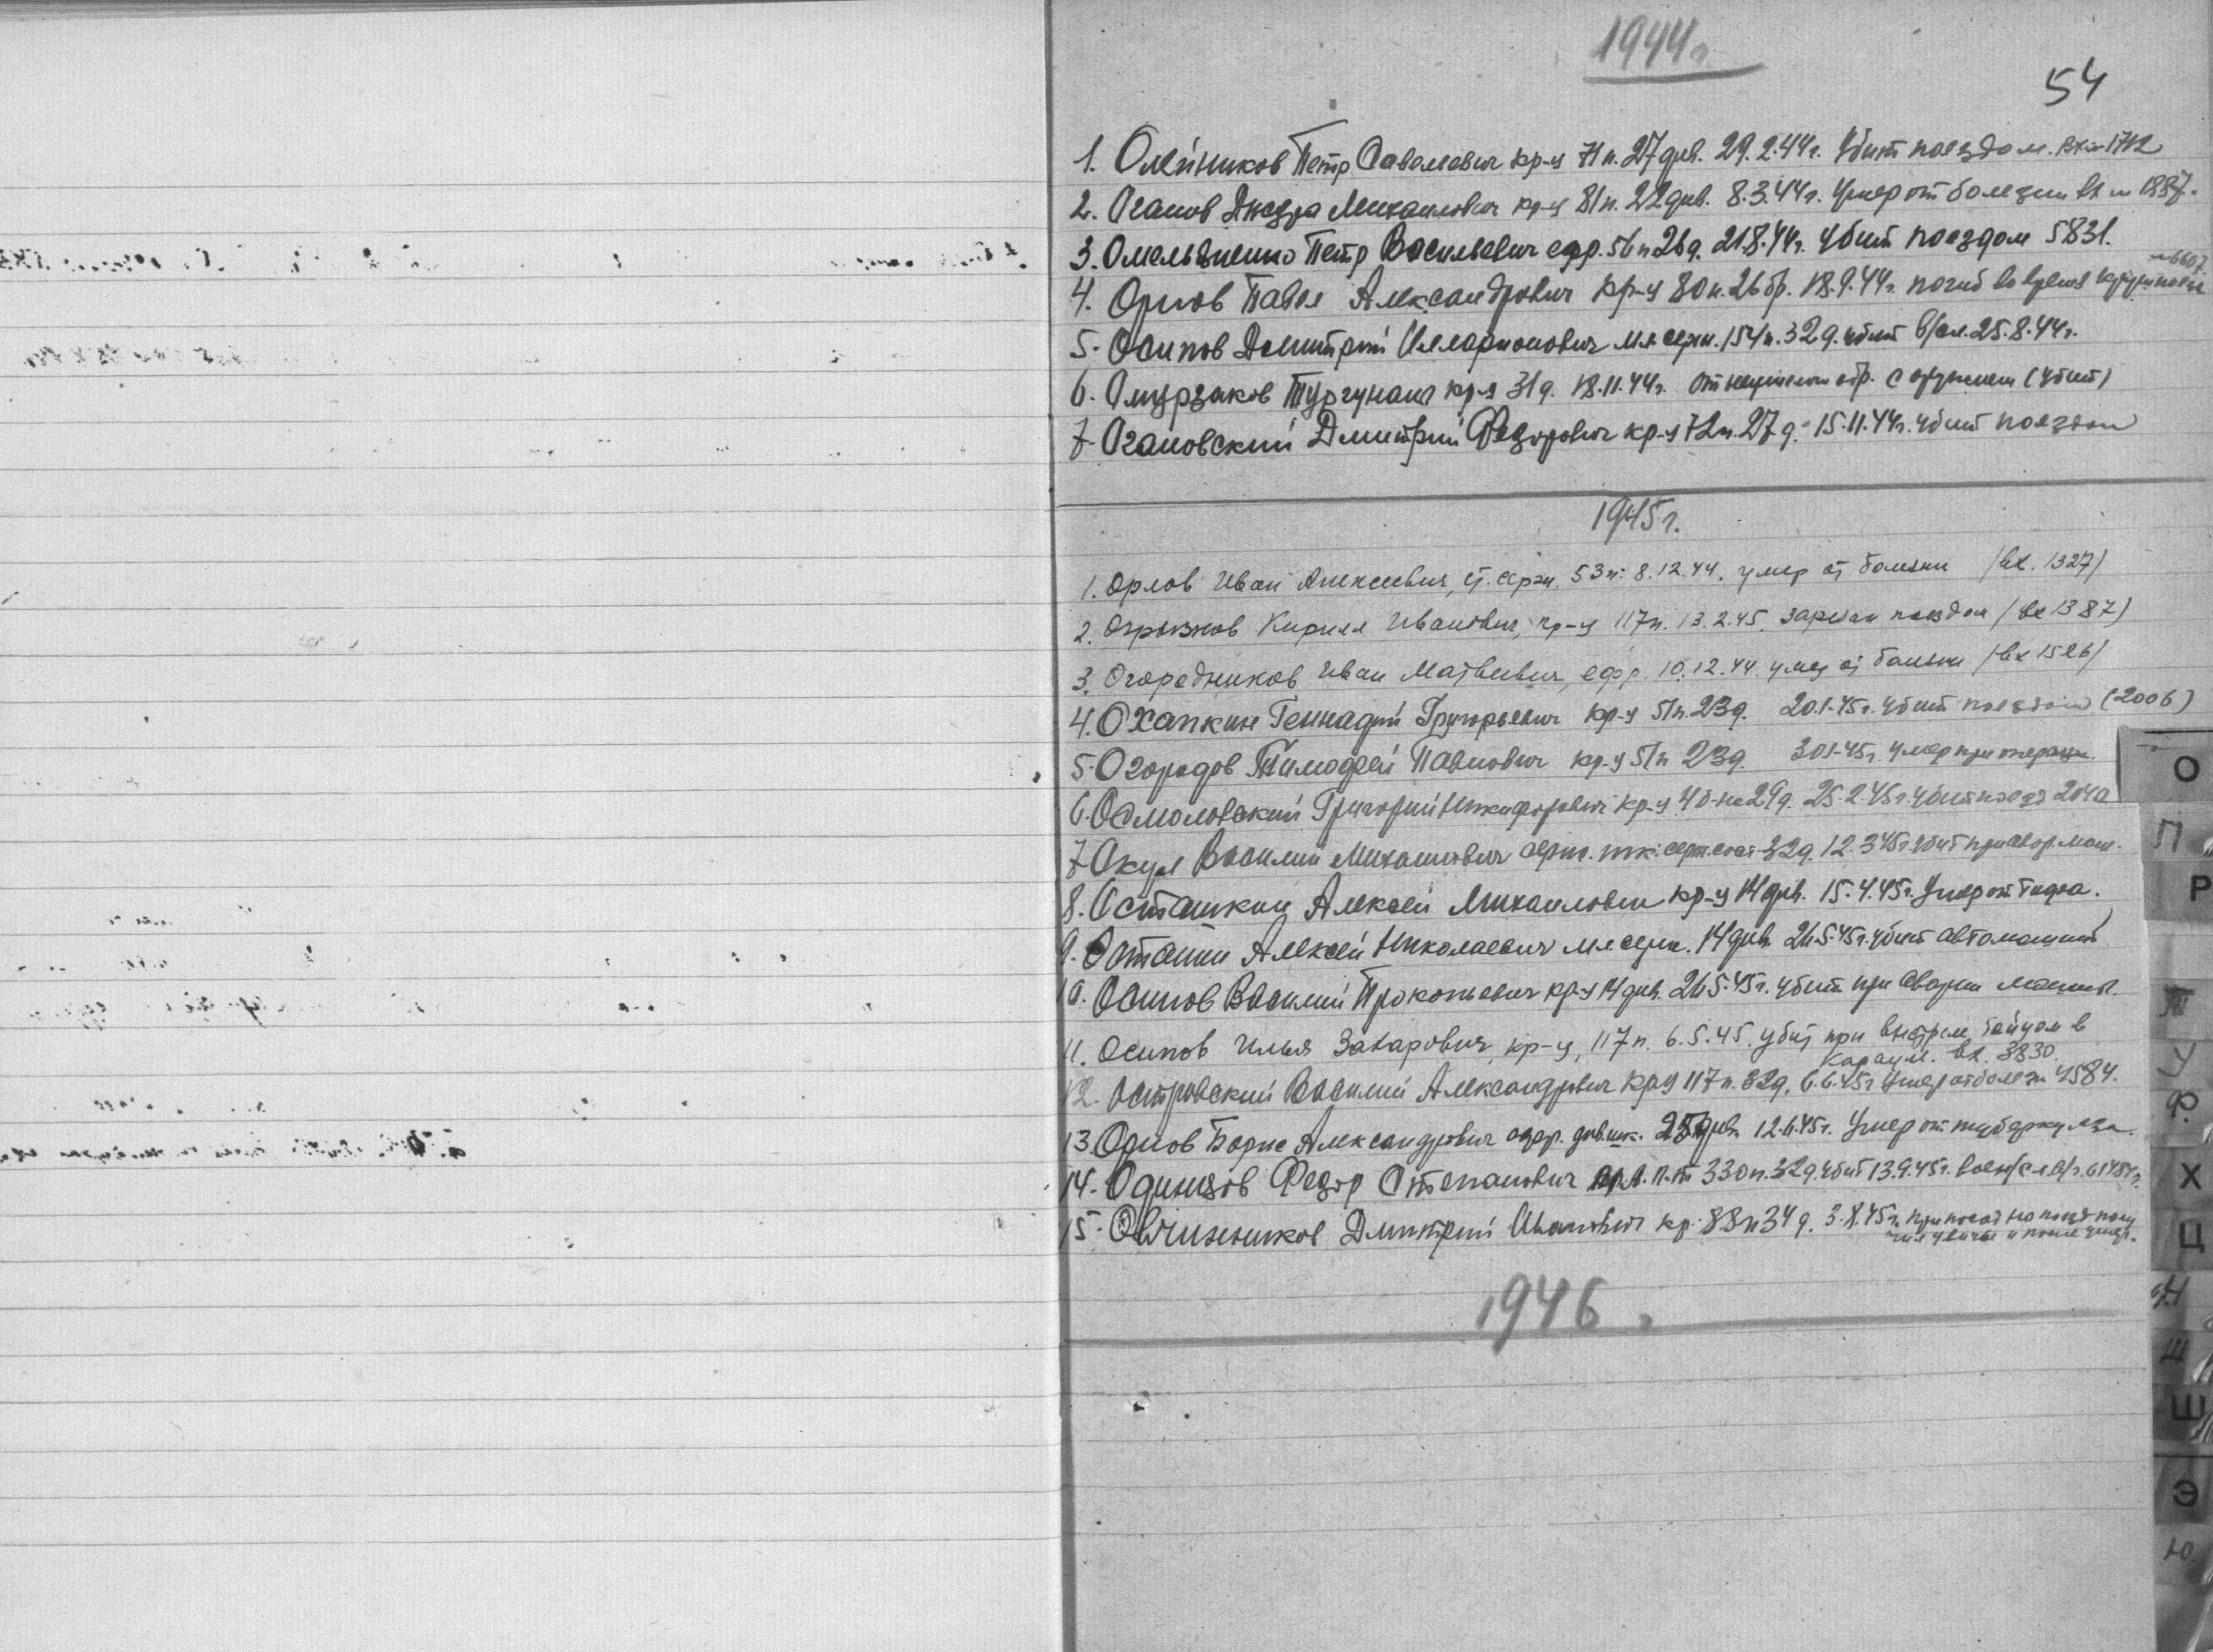 1944г.
54
1. Олейников Петр Савельевич кр-ц 71п. 27див. 29.2.44г. Убит поездом. Вх. 1712
2. Оганов Михайлович кр-ц 81п. 22див. 8.3.44г. Умер от болезни вх 1887.
3. Омельяненко Петр Васильевич ефр. 56п 26д. 21.8.44г. убит поездом 5831.
4. Орлов Павел Александрович кр-ц 80п. 26бр. 18.9.44г. погиб во время 6607
5. Осипов Дмитрий Илларионович мл серж. 154п. 32д. убит 25.8.44г.
6. Омурзаков кр-ц 31д. 18.11.44г. от обр. с оружием (убит)
7. Огановский Дмитрий Федорович кр-ц 72п. 27д. 15.11.44г. убит поездом
1945г.
1. Орлов Иван Алексеевич, ст. серж. 53п. 8.12.44. умер от болезни /вх. 1327/
2. Огрызков Кирилл Иванович, кр-ц 117п. 13.2.45. зарезан поездом /вх 1387/
3. Огородников Иван Матвеевич, ефр. 10.12.44. умер от болезни /вх 1526/
4. Охапкин Геннадий Григорьевич кр-ц 51п. 23д. 20.1.45г. убит поездом (2006)
5. Огородов Тимофей Павлович кр-ц 51п 23д. 30.1.45г. умер при операции.
6. Осмоловский Григорий Никифорович кр-ц 29д. 25.2.45г. убит поезд
7. Окул Василий Михайлович 32д. 12.3.45г. убит при авар. маш.
8. Осташкин Алексей Михайлович кр-ц 14див. 15.4.45г. Умер от тифа.
9. Осташин Алексей Николаевич мл серж. 14див. 26.5.45г. убит автомашин
10. Осипов Василий Прокопьевич кр-ц 14див. 26.5.45г. убит при аварии машины.
11. Осипов Илья Захарович, кр-ц, 117п. 6.5.45. убит при бойцом в
карауле. вх. 3830.
12. Островский Василий Александрович кр-ц 117п. 32д. 6.6.45г умер от болезн 4584.
13. Орлов Борис Александрович ефр. див. шк. 12.6.45г. Умер от туберкулеза.
14. Одинцов Федор Степанович 330п. 32д. убит 13.9.45г.
15. Овчинников Дмитрий Иванович кр. 88п 34д. 3.8.45г. при посад на поезд полу
чил увечье и после умер.
1946г.
О
П
Р
Т
У
Ф
Х
Ц
Ч
Ш
Э
Ю